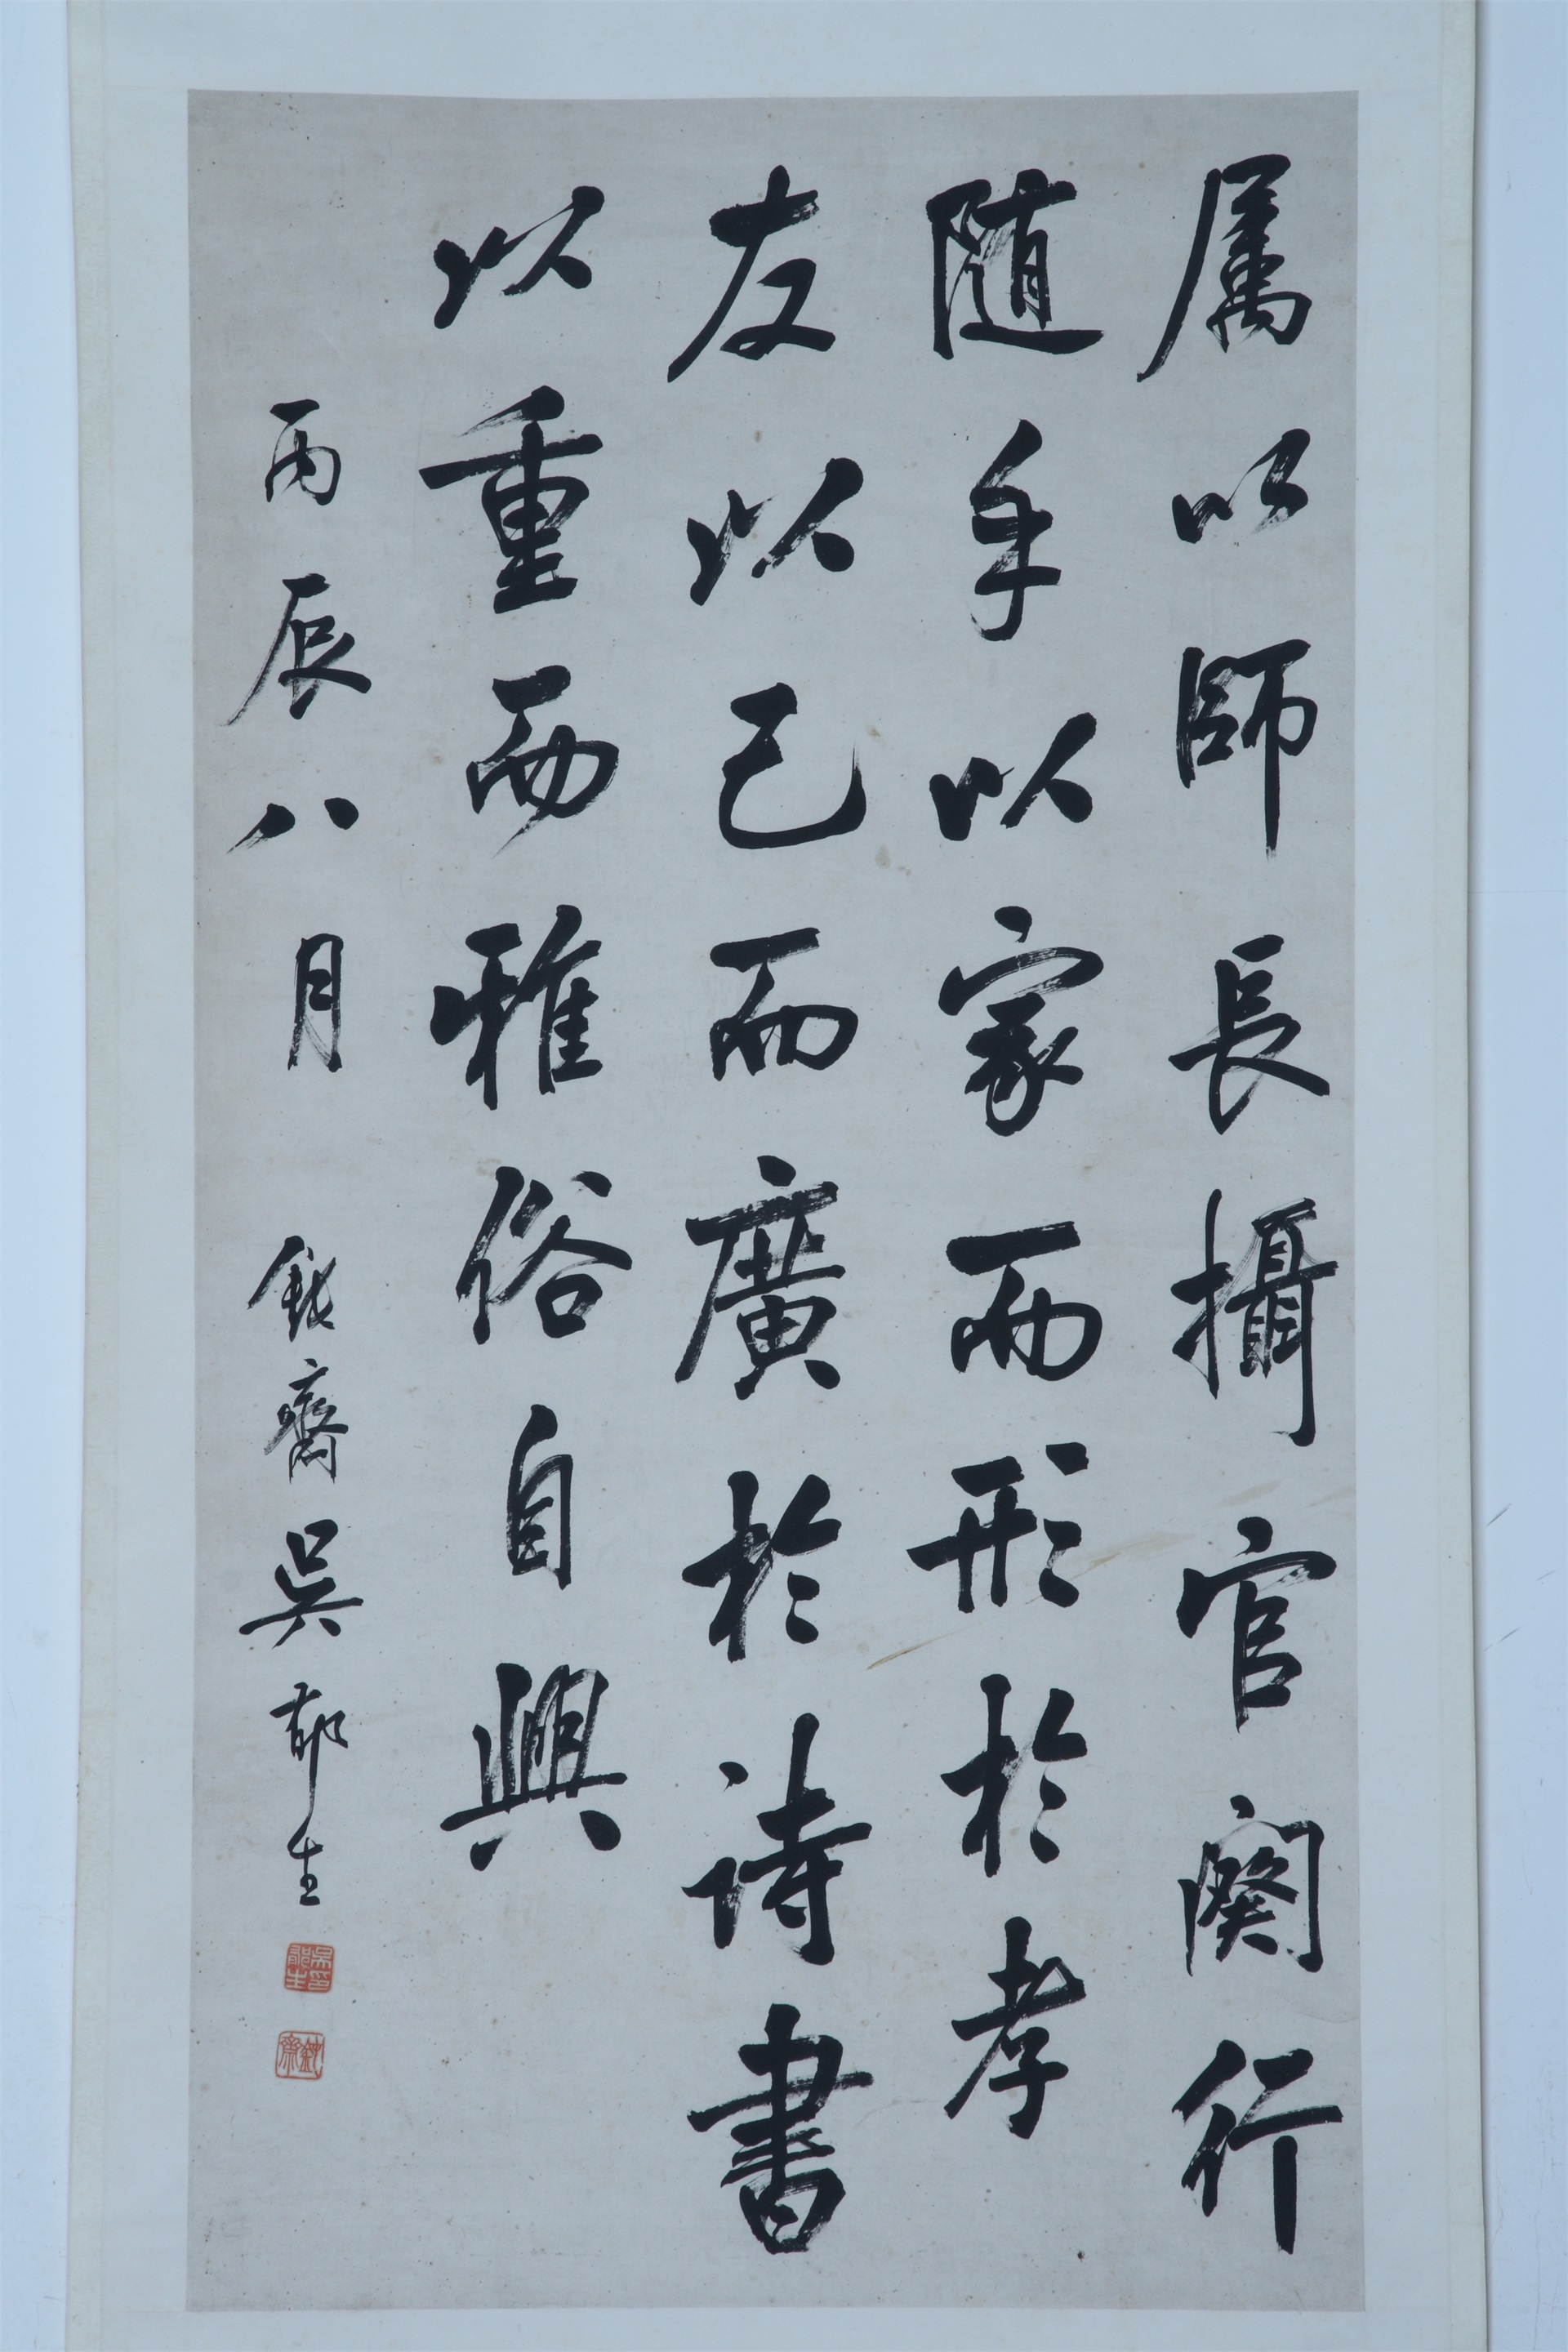 属以師長攝官闋行
随手以家而形於孝
友以己而廣於詩書
以重而雅俗自興
丙辰八月 鈍齋吳郁生
吳印郁生
鈍齋